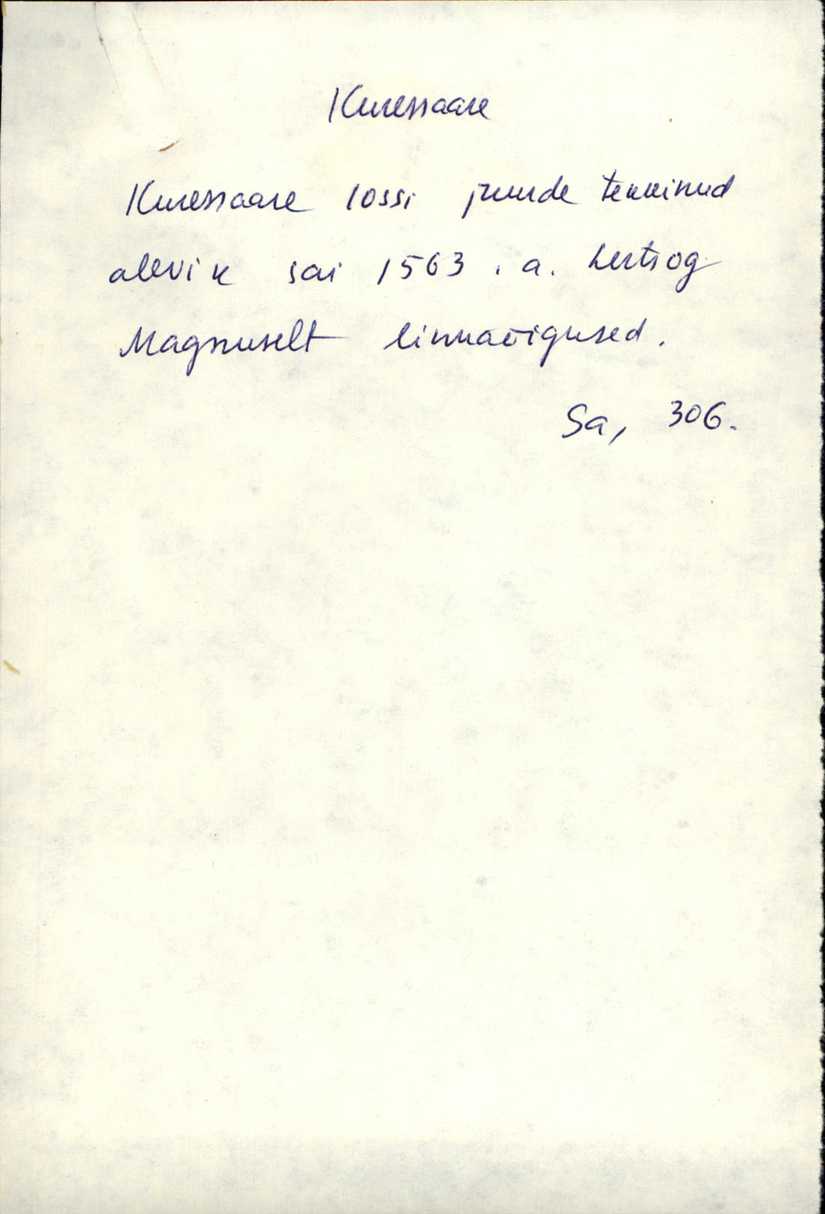 Kuressaare
Kuressaare lossi juurde tekkinud
alevik sai 1563. a. hertsog
Magnuselt linnaõigused.
Sa, 306.